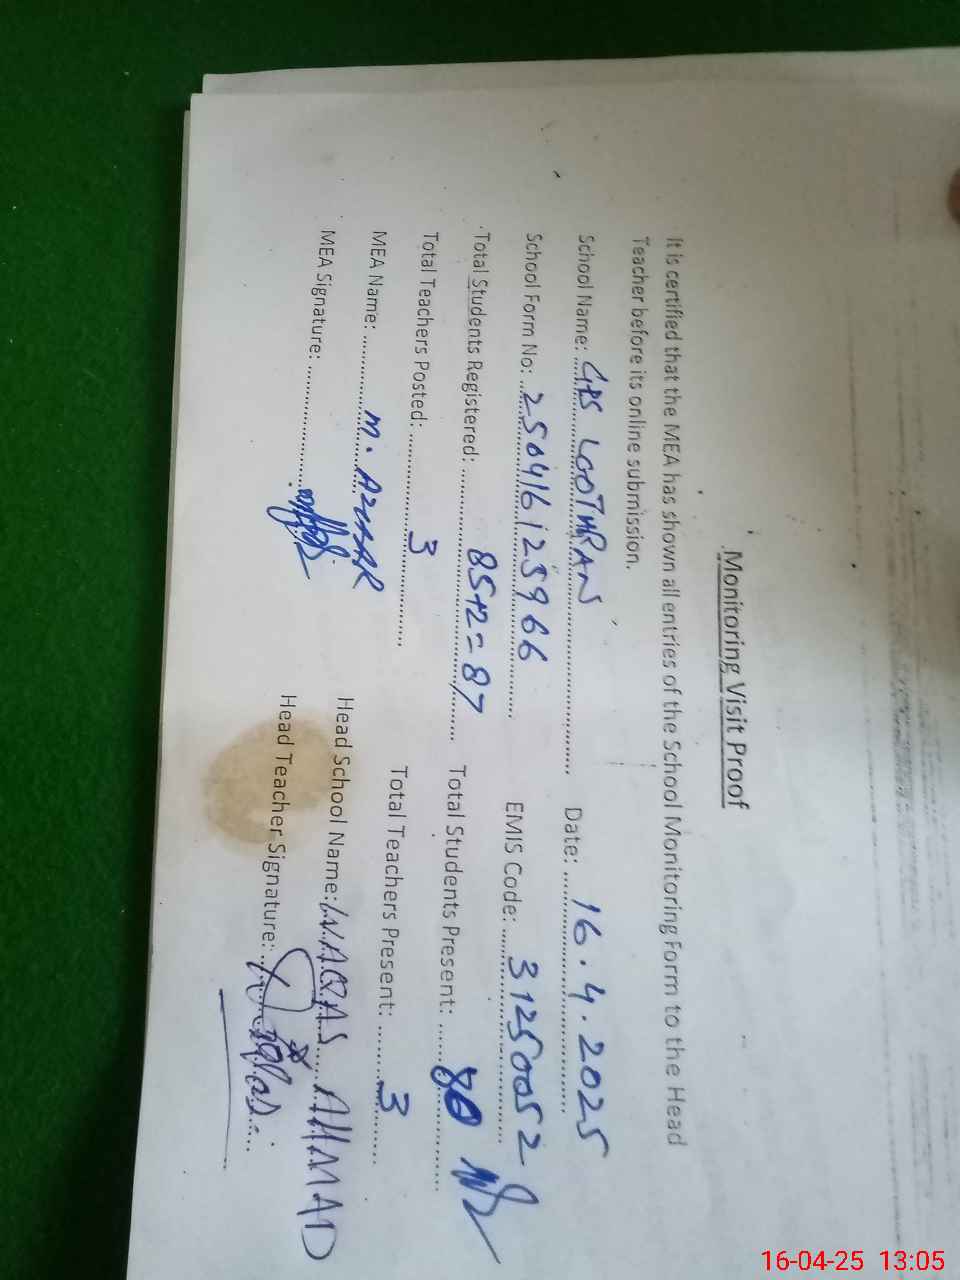 Monitoring Visit Proof
It is certified that the MEA has shown all entries of the School Monitoring Form to the Head
Teacher before its online submission.
School Name: GPS LOOTHRAN Date: 16.4.2025
School Form No: 250416125966 EMIS Code: 31250052
Total Students Registered: 85+2=87 Total Students Present: 80
Total Teachers Posted: 3 Total Teachers Present: 3
MEA Name: M. AZHAR Head School Name: WAQAS AHMAD
MEA Signature: Head Teacher Signature:
16-04-25 13:05